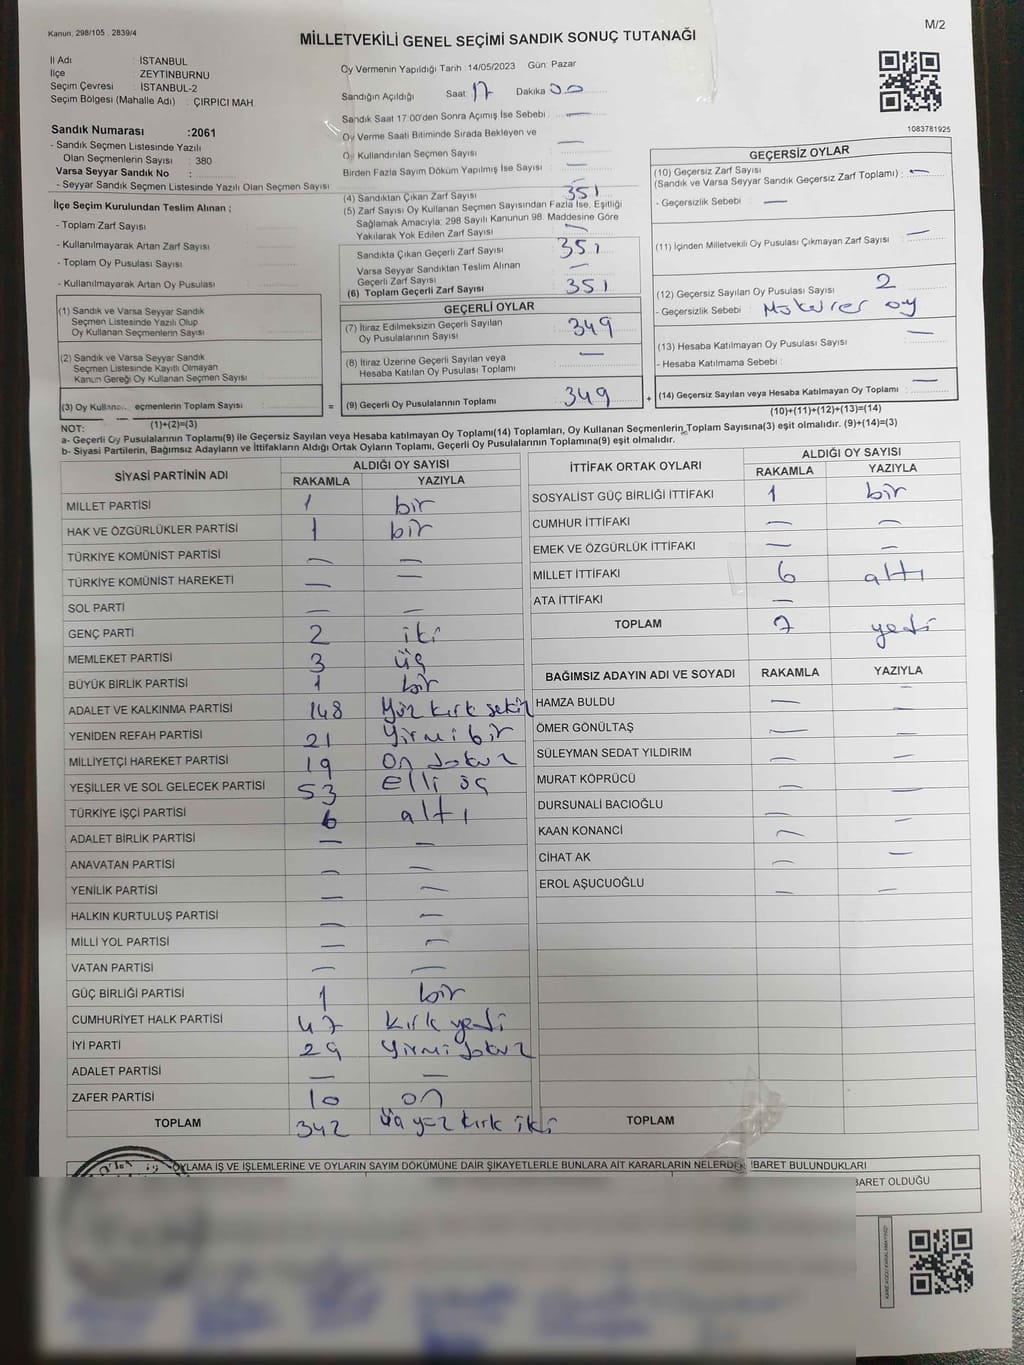 Kanun: 298/105 . 2839/4
M/2
MİLLETVEKİLİ GENEL SEÇİMİ SANDIK SONUÇ TUTANAĞI
İl Adı : İSTANBUL
İlçe : ZEYTİNBURNU
Seçim Çevresi : İSTANBUL-2
Seçim Bölgesi (Mahalle Adı) : ÇIRPICI MAH.
Sandık Numarası :2061
- Sandık Seçmen Listesinde Yazılı
Olan Seçmenlerin Sayısı : 380
Varsa Seyyar Sandık No :
- Seyyar Sandık Seçmen Listesinde Yazılı Olan Seçmen Sayısı
Oy Vermenin Yapıldığı Tarih :14/05/2023 Gün: Pazar
Sandığın Açıldığı Saat: 17 Dakika 00
Sandık Saat 17:00'den Sonra Açımış İse Sebebi : —
Oy Verme Saati Bitiminde Sırada Bekleyen ve
Oy Kullandırılan Seçmen Sayısı —
Birden Fazla Sayım Döküm Yapılmış İse Sayısı —
1083781925
İlçe Seçim Kurulundan Teslim Alınan ;
- Toplam Zarf Sayısı
- Kullanılmayarak Artan Zarf Sayısı
- Toplam Oy Pusulası Sayısı
- Kullanılmayarak Artan Oy Pusulası
(1) Sandık ve Varsa Seyyar Sandık
Seçmen Listesinde Yazılı Olup
Oy Kullanan Seçmenlerin Sayısı
(2) Sandık ve Varsa Seyyar Sandık
Seçmen Listesinde Kayıtlı Olmayan
Kanun Gereği Oy Kullanan Seçmen Sayısı
(3) Oy Kullanan eçmenlerin Toplam Sayısı
(1)+(2)=(3)
(4) Sandıktan Çıkan Zarf Sayısı 351
(5) Zarf Sayısı Oy Kullanan Seçmen Sayısından Fazla İse, Eşitliği
Sağlamak Amacıyla; 298 Sayılı Kanunun 98. Maddesine Göre
Yakılarak Yok Edilen Zarf Sayısı —
Sandıkta Çıkan Geçerli Zarf Sayısı 351
Varsa Seyyar Sandıktan Teslim Alınan
Geçerli Zarf Sayısı —
(6) Toplam Geçerli Zarf Sayısı 351
GEÇERLİ OYLAR
(7) İtiraz Edilmeksizin Geçerli Sayılan
Oy Pusulalarının Sayısı 349
(8) İtiraz Üzerine Geçerli Sayılan veya
Hesaba Katılan Oy Pusulası Toplamı —
= (9) Geçerli Oy Pusulalarının Toplamı 349 +
GEÇERSİZ OYLAR
(10) Geçersiz Zarf Sayısı
(Sandık ve Varsa Seyyar Sandık Geçersiz Zarf Toplamı) : —
- Geçersizlik Sebebi : —
(11) İçinden Milletvekili Oy Pusulası Çıkmayan Zarf Sayısı —
(12) Geçersiz Sayılan Oy Pusulası Sayısı 2
- Geçersizlik Sebebi : Mükerrer oy
(13) Hesaba Katılmayan Oy Pusulası Sayısı —
- Hesaba Katılmama Sebebi :
(14) Geçersiz Sayılan veya Hesaba Katılmayan Oy Toplamı : —
(10)+(11)+(12)+(13)=(14)
NOT:
a- Geçerli Oy Pusulalarının Toplamı(9) ile Geçersiz Sayılan veya Hesaba katılmayan Oy Toplamı(14) Toplamları, Oy Kullanan Seçmenlerin Toplam Sayısına(3) eşit olmalıdır. (9)+(14)=(3)
b- Siyasi Partilerin, Bağımsız Adayların ve İttifakların Aldığı Ortak Oyların Toplamı, Geçerli Oy Pusulalarının Toplamına(9) eşit olmalıdır.
SİYASİ PARTİNİN ADI ALDIĞI OY SAYISI
RAKAMLA YAZIYLA
MİLLET PARTİSİ 1 bir
HAK VE ÖZGÜRLÜKLER PARTİSİ 1 bir
TÜRKİYE KOMÜNİST PARTİSİ — —
TÜRKİYE KOMÜNİST HAREKETİ — —
SOL PARTİ — —
GENÇ PARTİ 2 iki
MEMLEKET PARTİSİ 3 üç
BÜYÜK BİRLİK PARTİSİ 1 bir
ADALET VE KALKINMA PARTİSİ 148 Yüz kırk sekiz
YENİDEN REFAH PARTİSİ 21 Yirmi bir
MİLLİYETÇİ HAREKET PARTİSİ 19 On dokuz
YEŞİLLER VE SOL GELECEK PARTİSİ 53 elli üç
TÜRKİYE İŞÇİ PARTİSİ 6 altı
ADALET BİRLİK PARTİSİ — —
ANAVATAN PARTİSİ — —
YENİLİK PARTİSİ — —
HALKIN KURTULUŞ PARTİSİ — —
MİLLİ YOL PARTİSİ — —
VATAN PARTİSİ — —
GÜÇ BİRLİĞİ PARTİSİ 1 bir
CUMHURİYET HALK PARTİSİ 47 kırk yedi
İYİ PARTİ 29 Yirmi dokuz
ADALET PARTİSİ — —
ZAFER PARTİSİ 10 on
TOPLAM 342 üç yüz kırk iki
İTTİFAK ORTAK OYLARI ALDIĞI OY SAYISI
RAKAMLA YAZIYLA
SOSYALİST GÜÇ BİRLİĞİ İTTİFAKI 1 bir
CUMHUR İTTİFAKI — —
EMEK VE ÖZGÜRLÜK İTTİFAKI — —
MİLLET İTTİFAKI 6 altı
ATA İTTİFAKI —
TOPLAM 7 yedi
BAĞIMSIZ ADAYIN ADI VE SOYADI RAKAMLA YAZIYLA
HAMZA BULDU — —
ÖMER GÖNÜLTAŞ — —
SÜLEYMAN SEDAT YILDIRIM — —
MURAT KÖPRÜCÜ — —
DURSUNALİ BACIOĞLU — —
KAAN KONANCİ — —
CİHAT AK — —
EROL AŞUCUOĞLU — —
TOPLAM
OYLAMA İŞ VE İŞLEMLERİNE VE OYLARIN SAYIM DÖKÜMÜNE DAİR ŞİKAYETLERLE BUNLARA AİT KARARLARIN NELERDEN İBARET BULUNDUKLARI
BARET OLDUĞU